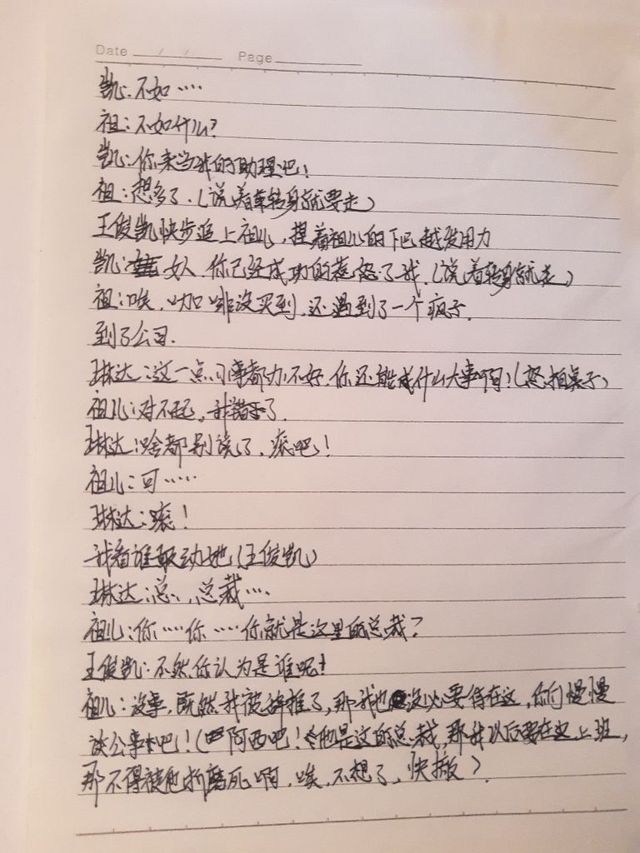 Date / / Page
凯：不如····
祖：不如什么？
凯：你来当我的助理吧！
祖：想多了．（说着转身就要走）
王俊凯快步追上祖儿，捏着祖儿的下巴越发用力
凯：女人，你已经成功的惹怒了我．（说着转身就走）
祖：唉，咖啡没买到，还遇到了一个疯子．
到了公司．
琳达：这一点小事都办不好，你还能成什么大事啊！（怒拍桌子）
祖儿：对不起，我错了．
琳达：啥都别说了，滚吧！
祖儿：可·····
琳达：滚！
我看谁敢动她（王俊凯）
琳达：总．，总裁····
祖儿：你····你····你就是这里的总裁？
王俊凯：不然你认为是谁呢！
祖儿：没事，既然我被辞推了，那我也没必要待在这，你们慢慢
谈公事吧！（阿西吧！他是这的总裁，那我以后要在这上班，
那不得被他折磨死啊，唉，不想了，快撤）